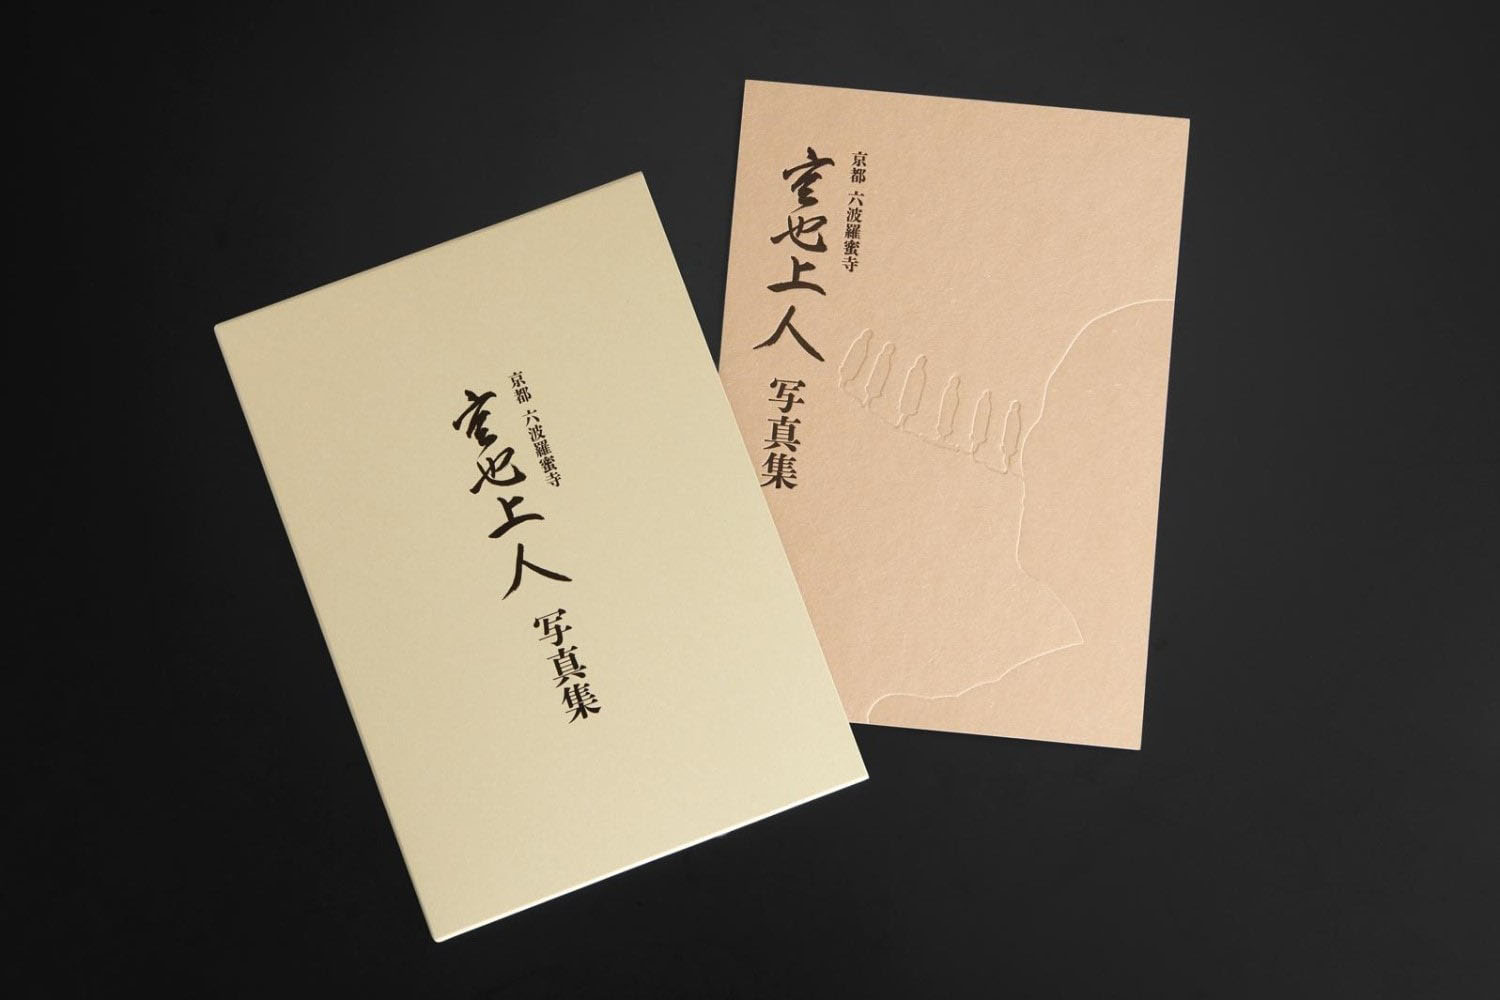 京都 六波羅蜜寺
空也上人 写真集
京都 六波羅蜜寺
空也上人 写真集